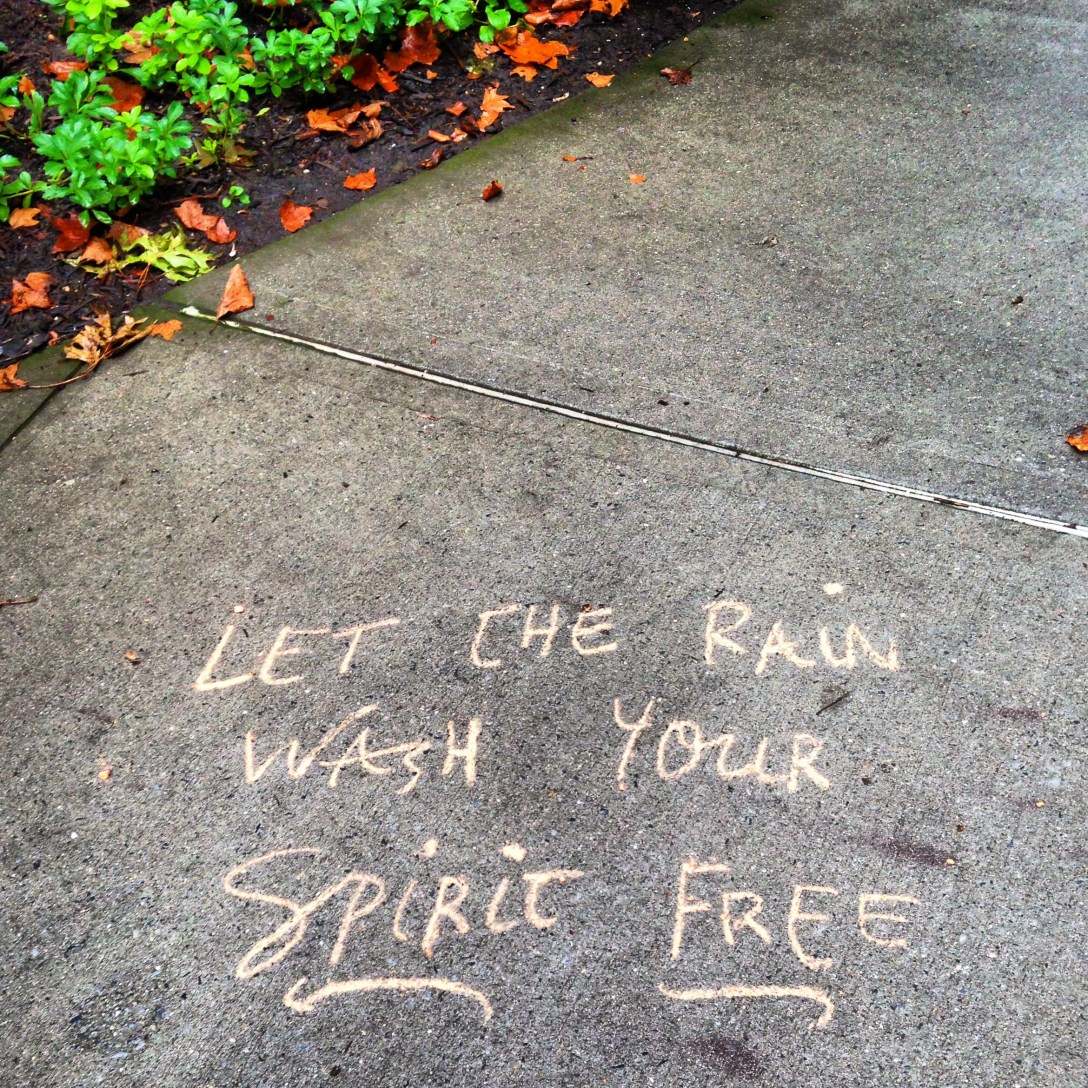 LET THE RAIN
WASH YOUR
SPiRiT FREE